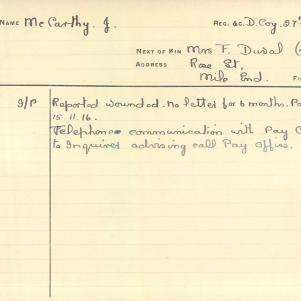 NAME McCarthy. J. REG. &C. D. Coy. 27
NEXT OF KIN Mrs F. Duval
ADDRESS Rose St,
Mile End.
S/P Reported wounded. No letter for 6 months. Pa
15.11.16.
Telephone communication with Pay
to Inquirer advising call Pay Office.